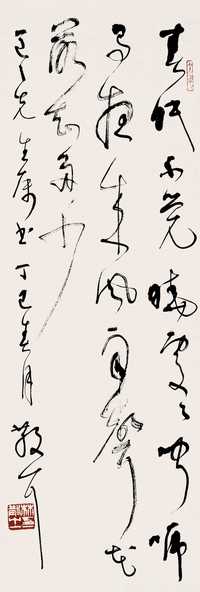 春眠不覺曉處々聞啼
鳥夜來風雨聲花
落知多少
先生属书丁巳春月 散耳